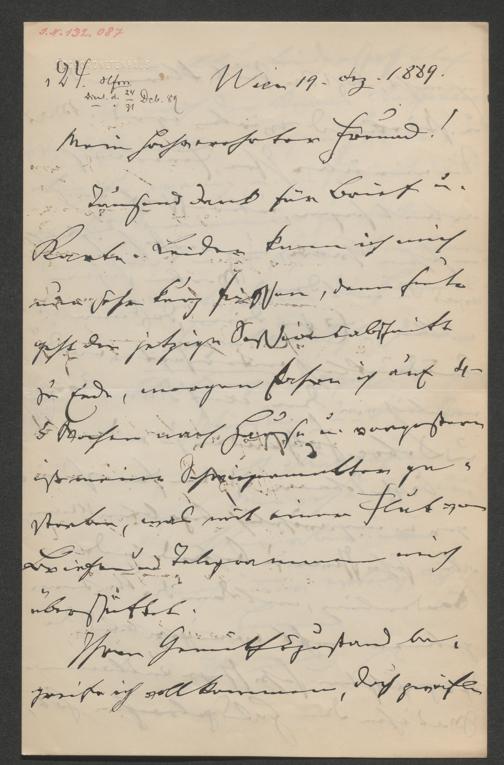 I.N. 132.087
Wien 19. Dez. 1889.
Mein hochverehrter Freund!
Tausend Dank für Brief u.
Karte. Leider kann ich mich
nur sehr kurz fassen, denn heute
geht der jetzige Sessionsabschnitt
zu Ende, morgen fahre ich auf 4-
5 Wochen nach Hause u. vorgestern
ist meine Schwiegermutter ge-
storben, was mit einer Flut von
Briefen und Telegrammen mich
überschüttet.
Ihren Gemüthszustand be-
greife ich vollkommen, doch zweifle